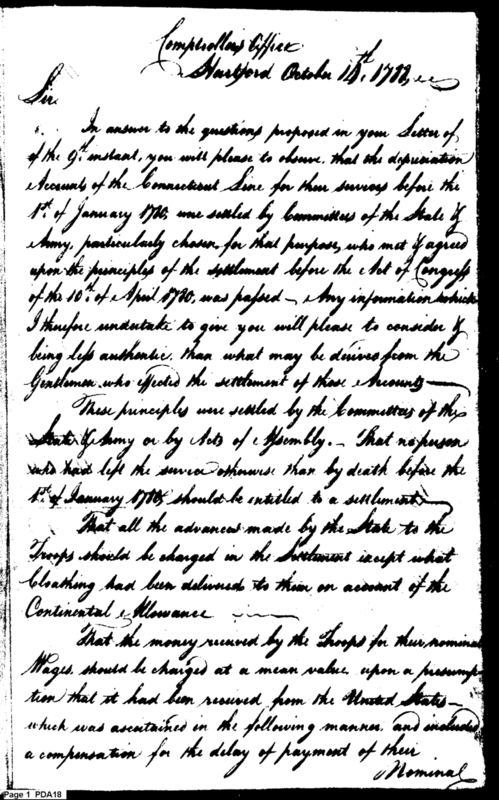 Comptrollers Office
Hartford October 14th. 1788
Sir
In answer to the questions proposed in your Letter of
of the 9th. instant, you will please to observe, that the depreciation
Accounts of the Connecticut Line for their services before the
1st. of January 1780, were settled by Committees of the State &
Army, particularly chosen for that purpose, who met & agreed
upon the principles of the settlement before the Act of Congress
of the 10th. of April 1780, was passed — Any information which
I therefore undertake to give you will please to consider of
being less authentic, than what may be derived from the
Gentlemen who effected the settlement of those Accounts —
These principles were settled by the Committees of the
State & Army or by Acts of Assembly. — That no person
who had left the service otherwise than by death before the
1st. of January 1780, should be entitled to a settlement —
That all the advances made by the State to the
Troops should be charged in the Settlement except what
Cloathing had been delivered to them on account of the
Continental Allowance —
That the money received by the Troops for their nominal
Wages, should be charged at a mean value upon a presump-
tion that it had been received from the United States —
which was ascertained in the following manner, and included
a compensation for the delay of payment of their
Nominal
Page 1 PDA18